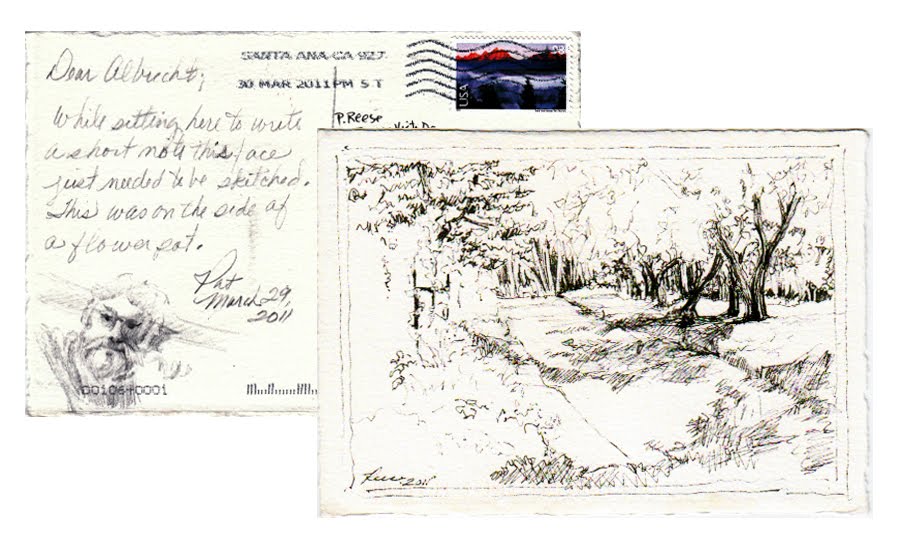 Dear Albrecht;
While sitting here to write
a short note this face
just needed to be sketched.
This was on the side of
a flower pot.
Pat
March 29,
2011
SANTA ANA CA 927
30 MAR 2011 PM 5 T
USA
28
P.Reese
Reese 2011